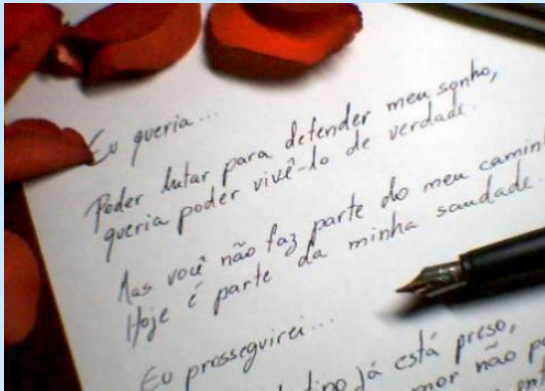 Eu queria...
Poder lutar para defender meu sonho,
queria poder vivê-lo de verdade.
Mas você não faz parte do meu
Hoje é parte da minha saudade.
Eu prosseguirei...
já está preso,
não